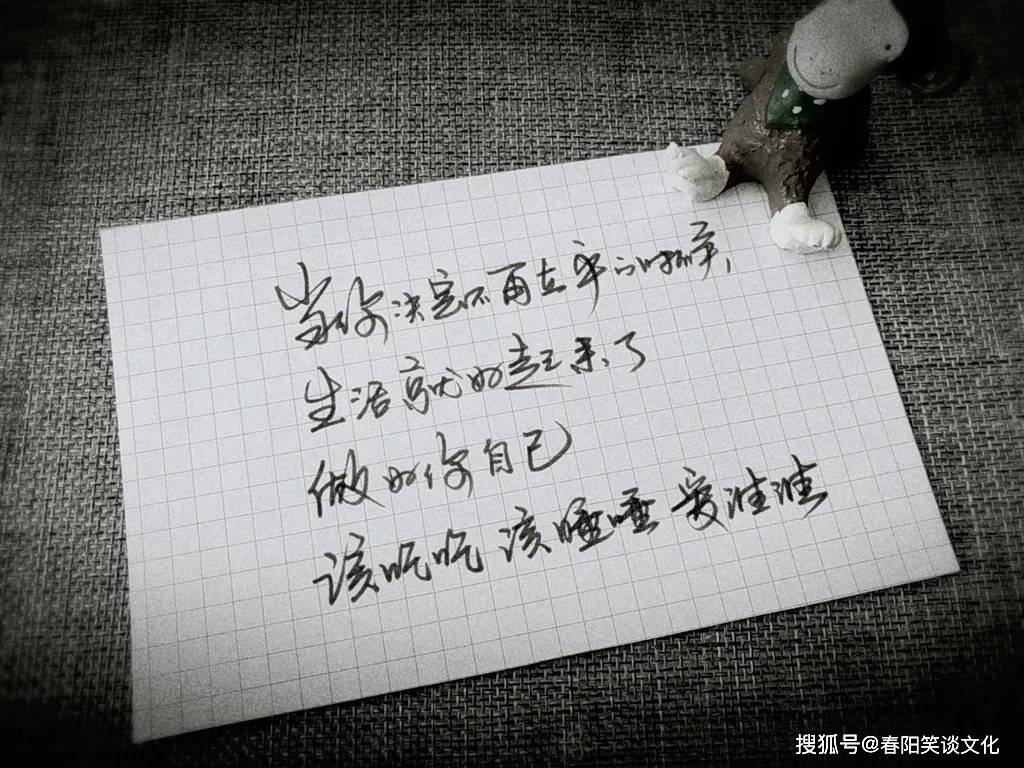 当你决定不再在乎的时候，
生活就好起来了
做好你自己
该吃吃 该睡睡 爱谁谁
搜狐号@春阳笑谈文化